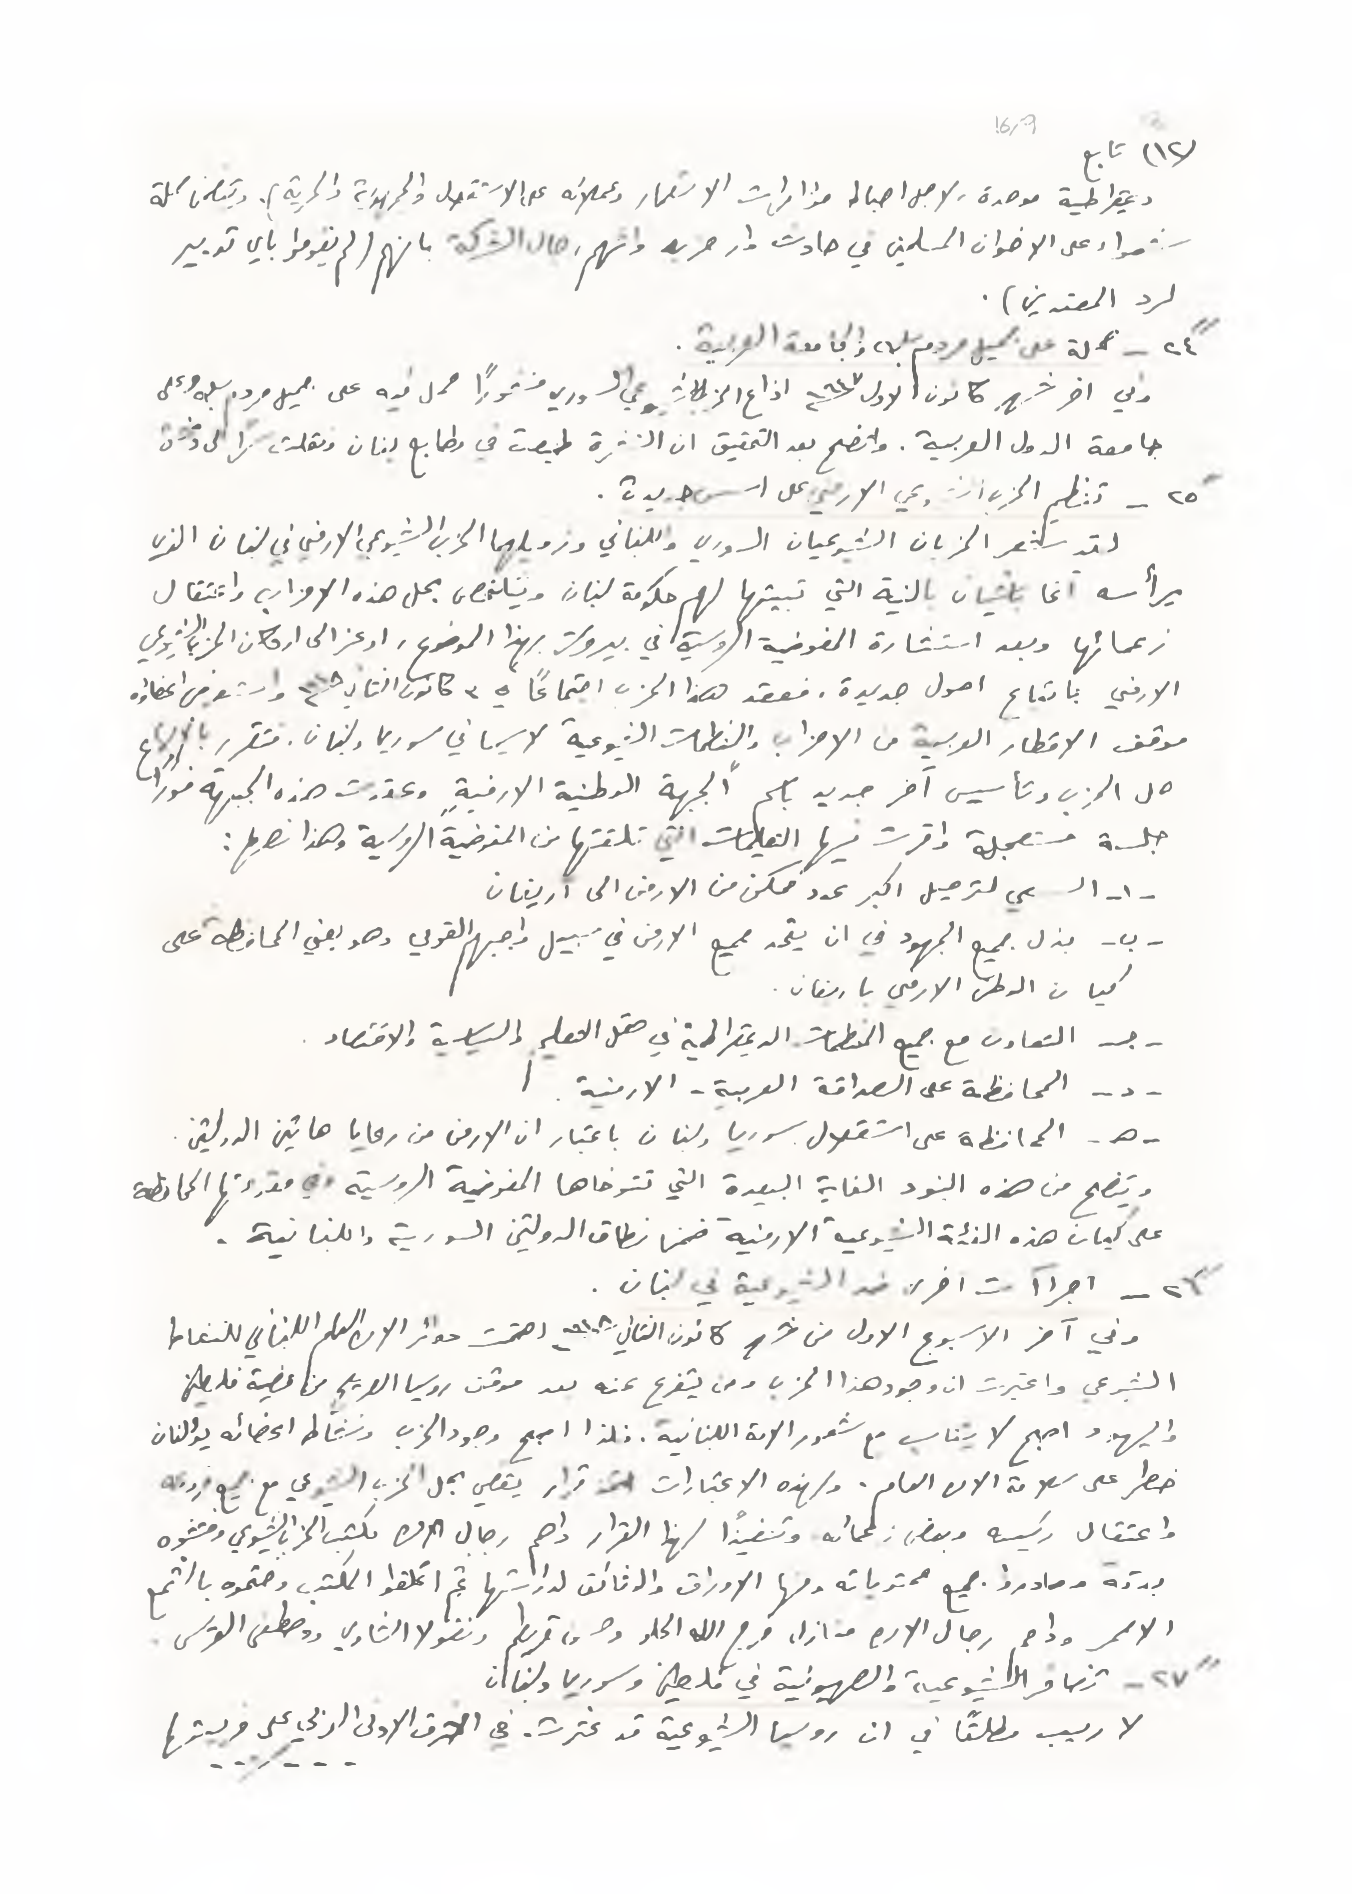 16/9
(١٢) تابع
ديمقراطية موحدة، لاجل احباط مؤامرات الاستعمار وعملائه على الاستقلال والجمهورية والحرية). ويتضمن حملة
شعواء على الاخوان المسلمين في حادث دار واتهم رجال الشركة بانهم (لم يقوموا بأي تدبير
لرد المعتدين).
٢٤ - حملة على جميل مردم بك والجامعة العربية.
وفي اخر شهر كانون الاول ١٩٤٧ اذاع الحزب الشيوعي السوري منشورًا حمل فيه على جميل مردم بك وعلى
جامعة الدول العربية. واتضح بعد التحقيق ان النشرة طبعت في مطابع لبنان ونقلت سرًا الى دمشق
٢٥ - تنظيم الحزب الشيوعي الارمني على اسس جديدة.
لقد استشعر الحزبان الشيوعيان السوري واللبناني وزميلهما الحزب الشيوعي الارمني في لبنان الذي
يرأسه بالنية التي تبيتها لهم حكومة لبنان وتتلخص بحل هذه الاحزاب واعتقال
زعمائها وبعد استشارة المفوضية الروسية في بيروت بهذا الموضوع، اوعز الى اركان الحزب الشيوعي
الارمني باتباع اصول جديدة. فعقد هذا الحزب اجتماعًا في ٣ كانون الثاني ١٩٤٨ واستعرض اعضاؤه
موقف الاقطار العربية من الاحزاب والمنظمات الشيوعية لاسيما في سوريا ولبنان. فتقرر بالاجماع
حل الحزب وتأسيس آخر جديد باسم "الجبهة الوطنية الارمنية" وعقدت هذه الجبهة فورًا
جلسة مستعجلة واقرت فيها التعليمات التي تلقتها من المفوضية الروسية وهذا نصها:
-ا- السعي لترحيل اكبر عدد ممكن من الارمن الى ارمينيان
-ب- بذل جميع الجهود في ان يتحد جميع الارمن في سبيل واجبهم القومي وهو يعني المحافظة على
كيان الوطن الارمني بارمينيان.
-جـ- التعاون مع جميع المنظمات الديمقراطية في حقل التعليم والسياسة والاقتصاد.
-د- المحافظة على الصداقة العربية - الارمنية.
-هـ- المحافظة على استقلال سوريا ولبنان باعتبار ان الارمن من رعايا هاتين الدولتين.
ويتضح من هذه البنود الغاية البعيدة التي تتوخاها المفوضية الروسية وفي مقدمتها المحافظة
على كيان هذه الفئة الشيوعية الارمنية ضمن نطاق الدولتين السورية واللبنانية.
٢٦ - اجراآت اخرى ضد الشيوعية في لبنان.
وفي آخر الاسبوع الاول من شهر كانون الثاني ١٩٤٨ اهتمت دوائر الامن العام اللبناني للنشاط
الشيوعي واعتبرت ان وجود هذا الحزب ومن يتفرع عنه بعد موقف روسيا الصريح من قضية فلسطين
واليهود اصبح لا يتناسب مع شعور الامة اللبنانية. ولذا اصبح وجود الحزب ونشاط اعضائه يؤلفان
خطرًا على سلامة الامن العام. ولهذه الاعتبارات اتخذ قرار يقضي بحل الحزب الشيوعي مع جميع فروعه
واعتقال رئيسه وبعض زعمائه وتنفيذًا لهذا القرار داهم رجال الامن مكتب الحزب الشيوعي وفتشوه
بدقة وصادروا جميع محتوياته ومنها الاوراق والوثائق لدراستها ثم اغلقوا المكتب وختموه بالشمع
الاحمر وداهم رجال الامن منازل فرج الله الحلو وحسن قريطم ونقولا الشاوي ومصطفى العريس.
٢٧ - تضافر الشيوعية والصهيونية في فلسطين وسوريا ولبنان
لا ريب مطلقًا في ان روسيا الشيوعية قد عثرت. في الشرق الادنى العربي على فريستها